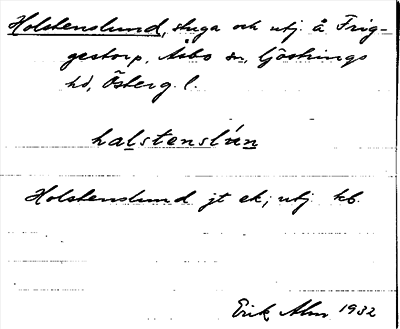 Holstenslund, stuga och utj. å Frig-
gestorp, Åsbo sn, Göstrings
hd, Österg. l.
halstenslún
Holstenslund jt ek; utj. kb.
Erik Alm 1932